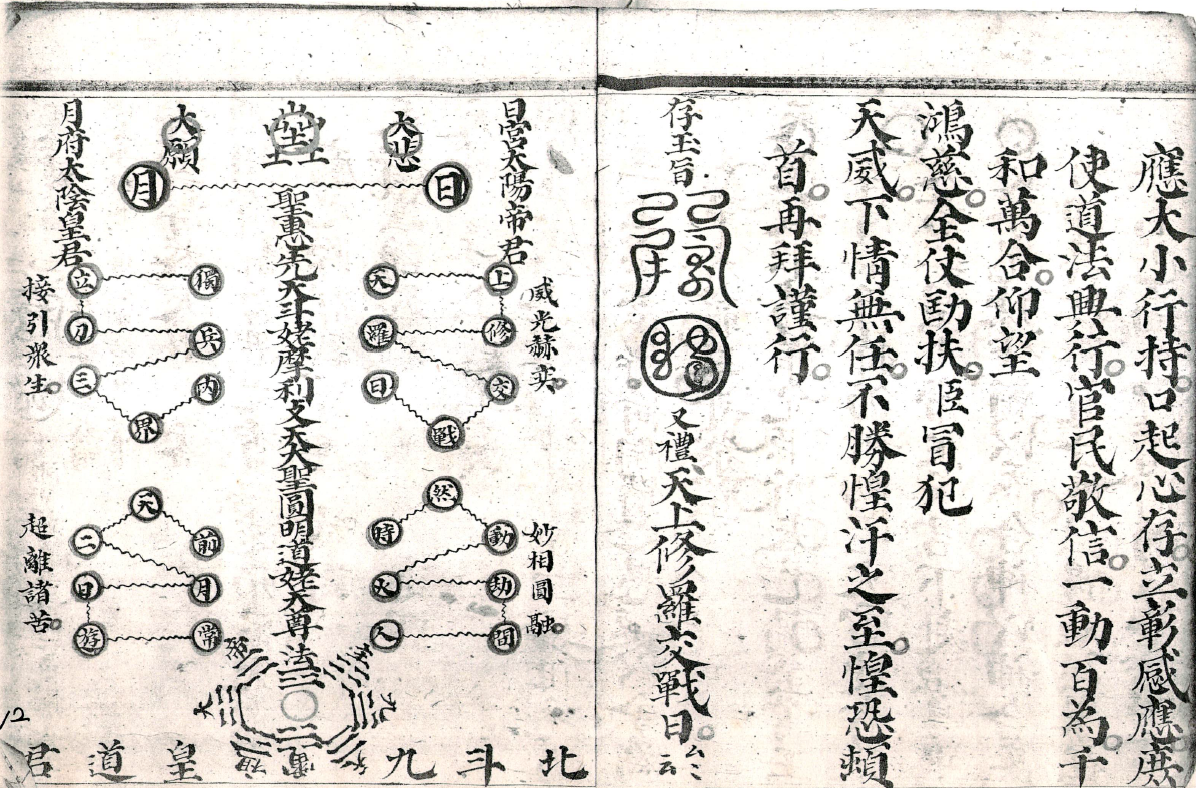 應大小行持口起心存立彰感應庶
使道法興行官民敬信一動百為千
和萬合仰望
鴻慈全仗劻扶臣冒犯
天威下情無任不勝惶汗之至惶恐頓
首再拜謹行
存玉旨
又禮天上修羅交戰日厶厶云
日宮太陽帝君
威光赫奕
妙相圓融
大悲
日
上
天
修
羅
交
日
戰
然
動
時
劫
火
間
入
聖惠先天斗姥摩利攴天大聖圓明道姥天尊
法
大願
月
獨
立
兵
刀
內
三
界
天
前
二
月
日
常
遊
月府太陰皇君
接引眾生
超離諸苦
北斗九皇道君
12